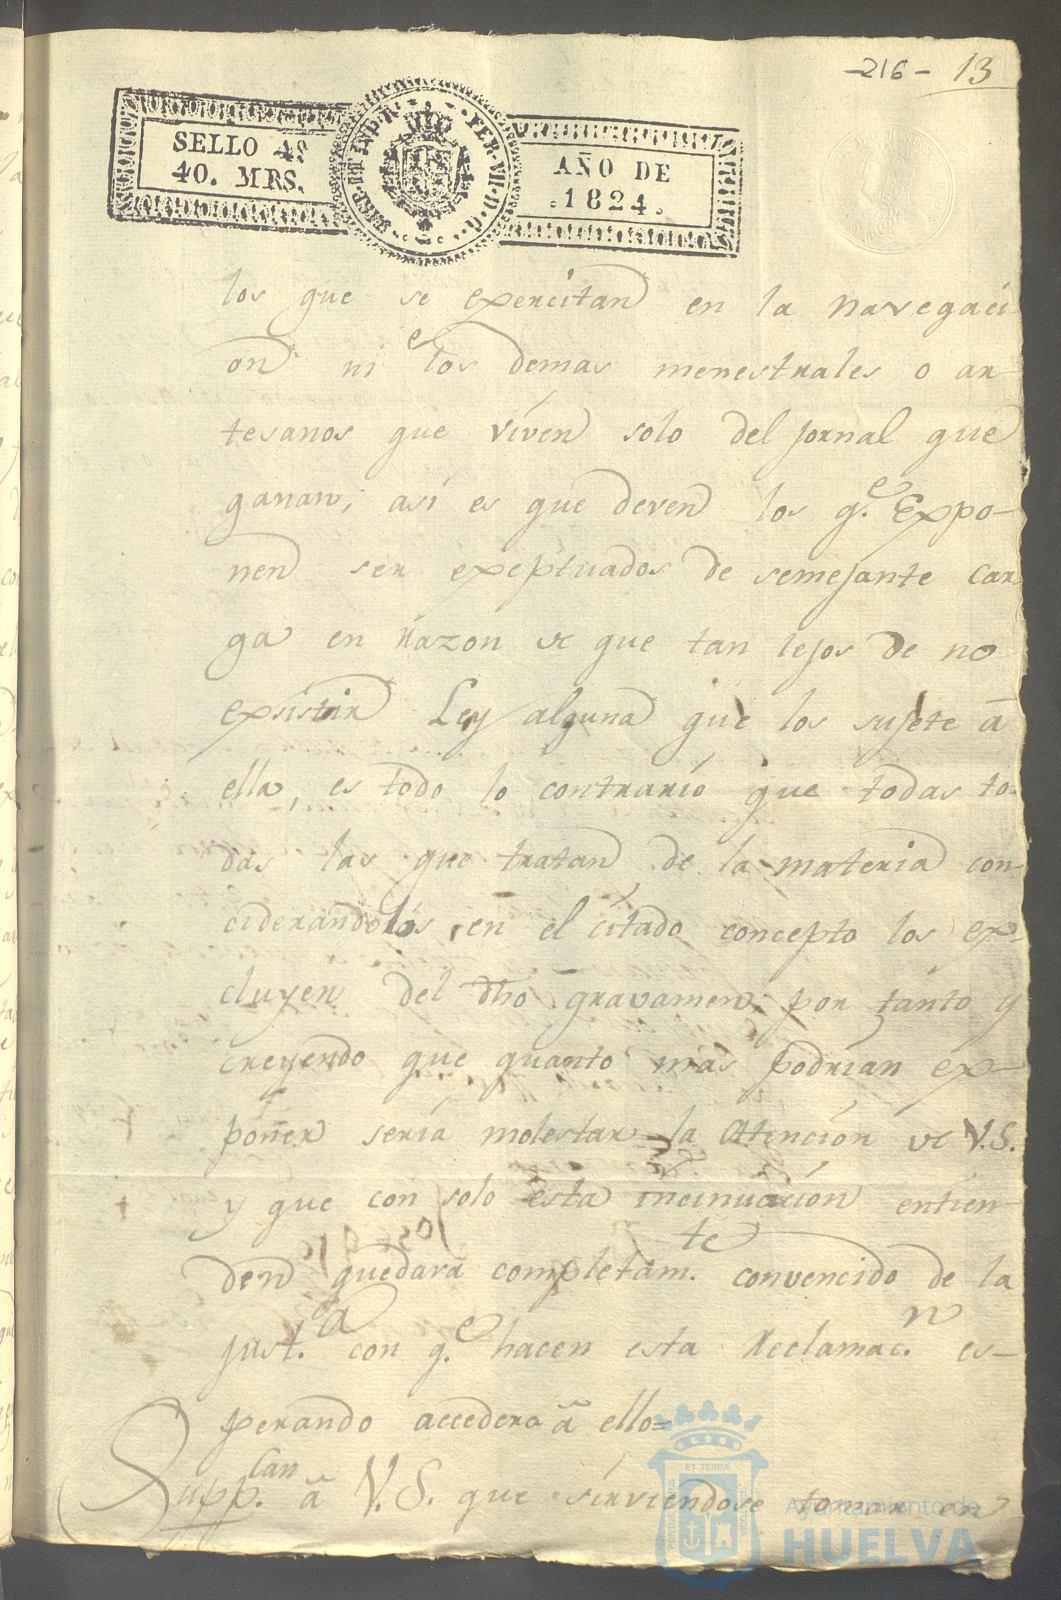 -216- 13
SELLO 4º
40. MRS.
HISP. ET IND. R. FER. VII. D. G.
AÑO DE
1824.
los que se exercitan en la navegaci
on ni e los demas menestrales o ar-
tesanos que viven solo del jornal que
ganan; así es que deven los q.e Expo-
nen ser exeptuados de semejante car
ga en razon de que tan lejos de no
existir Ley alguna que los sujete á
ella, es todo lo contrario que todas to-
das las que tratan de la materia con-
ciderandolos en el citado concepto los ex-
cluyen del dho gravamen; por tanto y
creyendo que quanto mas podrian ex-
poner seria molestar la Atencion de V.S.
y que con solo esta incinuacion entien-
den quedará completam.te convencido de la
just.a con q.e hacen esta reclamac.n es-
perando accedera á ello=
Supp.can á V.S. que sirviendose tomar en
ET TERRÆ
PORTUS MARIS
CUSTODIA
Ayuntamiento de
HUELVA